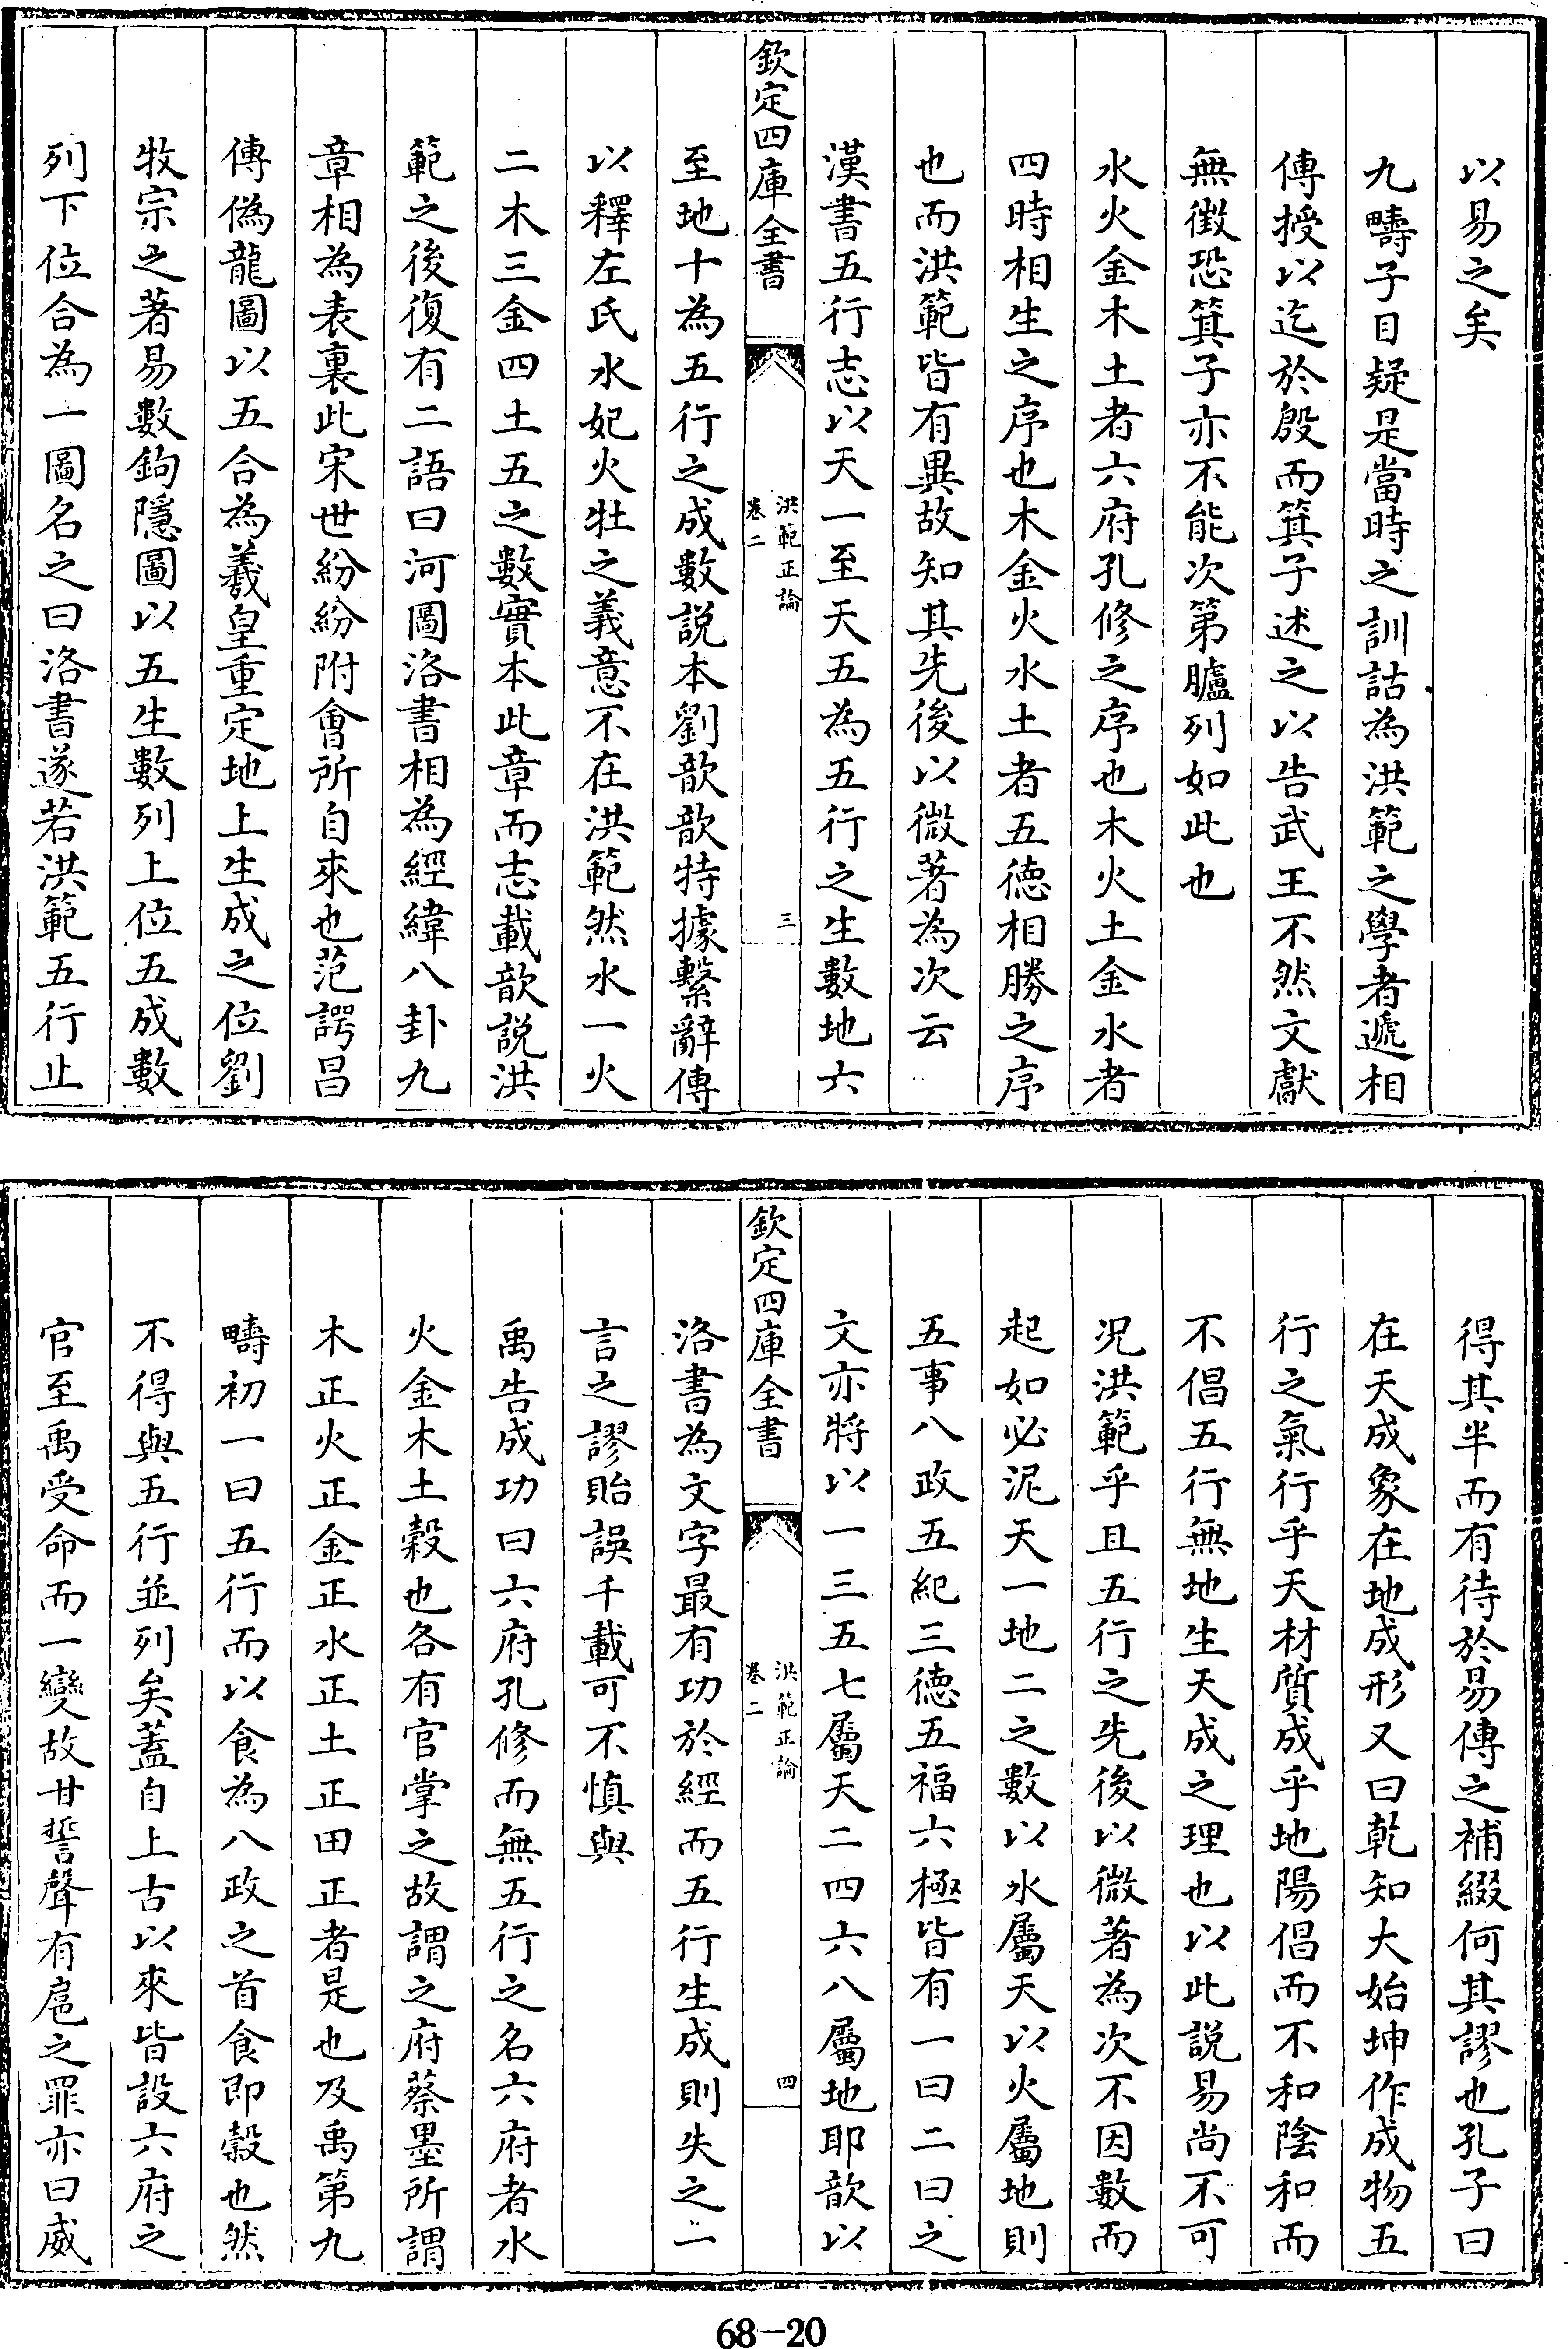 以易之矣
九疇子目疑是當時之訓詁為洪範之學者遞相
傳授以迄於殷而箕子述之以告武王不然文獻
無徵恐箕子亦不能次第臚列如此也
水火金木土者六府孔修之序也木火土金水者
四時相生之序也木金火水土者五德相勝之序
也而洪範皆有異故知其先後以微著為次云
漢書五行志以天一至天五為五行之生數地六
欽定四庫全書
洪範正論
卷二
三
至地十為五行之成數説本劉歆歆特據繫辭傳
以釋左氏水妃火牡之義意不在洪範然水一火
二木三金四土五之數實本此章而志載歆説洪
範之後復有二語曰河圖洛書相為經緯八卦九
章相為表裏此宋世紛紛附會所自來也范諤昌
傳偽龍圖以五合為羲皇重定地上生成之位劉
牧宗之著易數鉤隱圖以五生數列上位五成數
列下位合為一圖名之曰洛書遂若洪範五行止
得其半而有待於易傳之補綴何其謬也孔子曰
在天成象在地成形又曰乾知大始坤作成物五
行之氣行乎天材質成乎地陽倡而不和陰和而
不倡五行無地生天成之理也以此説易尚不可
况洪範乎且五行之先後以微著為次不因數而
起如必泥天一地二之數以水屬天以火屬地則
五事八政五紀三德五福六極皆有一曰二曰之
文亦將以一三五七屬天二四六八屬地耶歆以
欽定四庫全書
洪範正論
卷二
四
洛書為文字最有功於經而五行生成則失之一
言之謬貽誤千載可不慎與
禹告成功曰六府孔修而無五行之名六府者水
火金木土穀也各有官掌之故謂之府蔡墨所謂
木正火正金正水正土正田正者是也及禹第九
疇初一曰五行而以食為八政之首食即穀也然
不得與五行並列矣蓋自上古以來皆設六府之
官至禹受命而一變故甘誓聲有扈之罪亦曰威
68-20